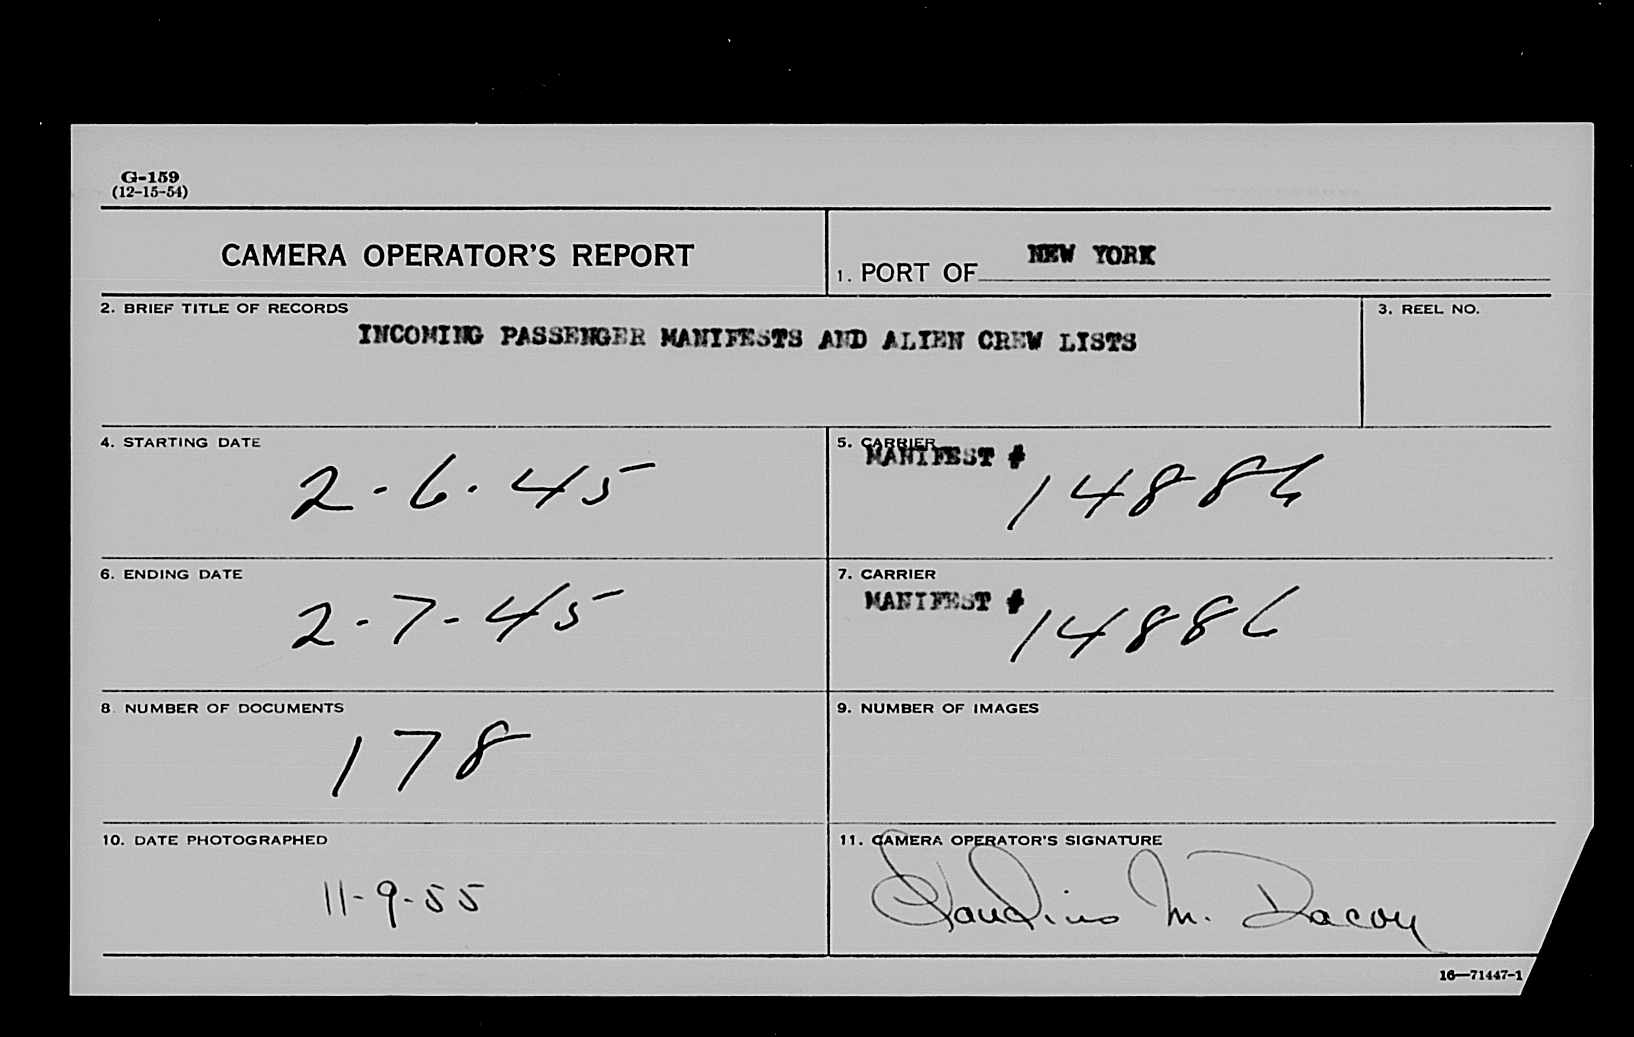 G-159
(12-15-54)
CAMERA OPERATOR'S REPORT
1. PORT OF NEW YORK
2. BRIEF TITLE OF RECORDS
INCOMING PASSENGER MANIFESTS AND ALIEN CREW LISTS
3. REEL NO.
4. STARTING DATE
2-6-45
5. CARRIER
MANIFEST # 14886
6. ENDING DATE
2-7-45
7. CARRIER
MANIFEST # 14886
8. NUMBER OF DOCUMENTS
178
9. NUMBER OF IMAGES
10. DATE PHOTOGRAPHED
11-9-55
11. CAMERA OPERATOR'S SIGNATURE
Claudino M. Dacoy
16—71447-1